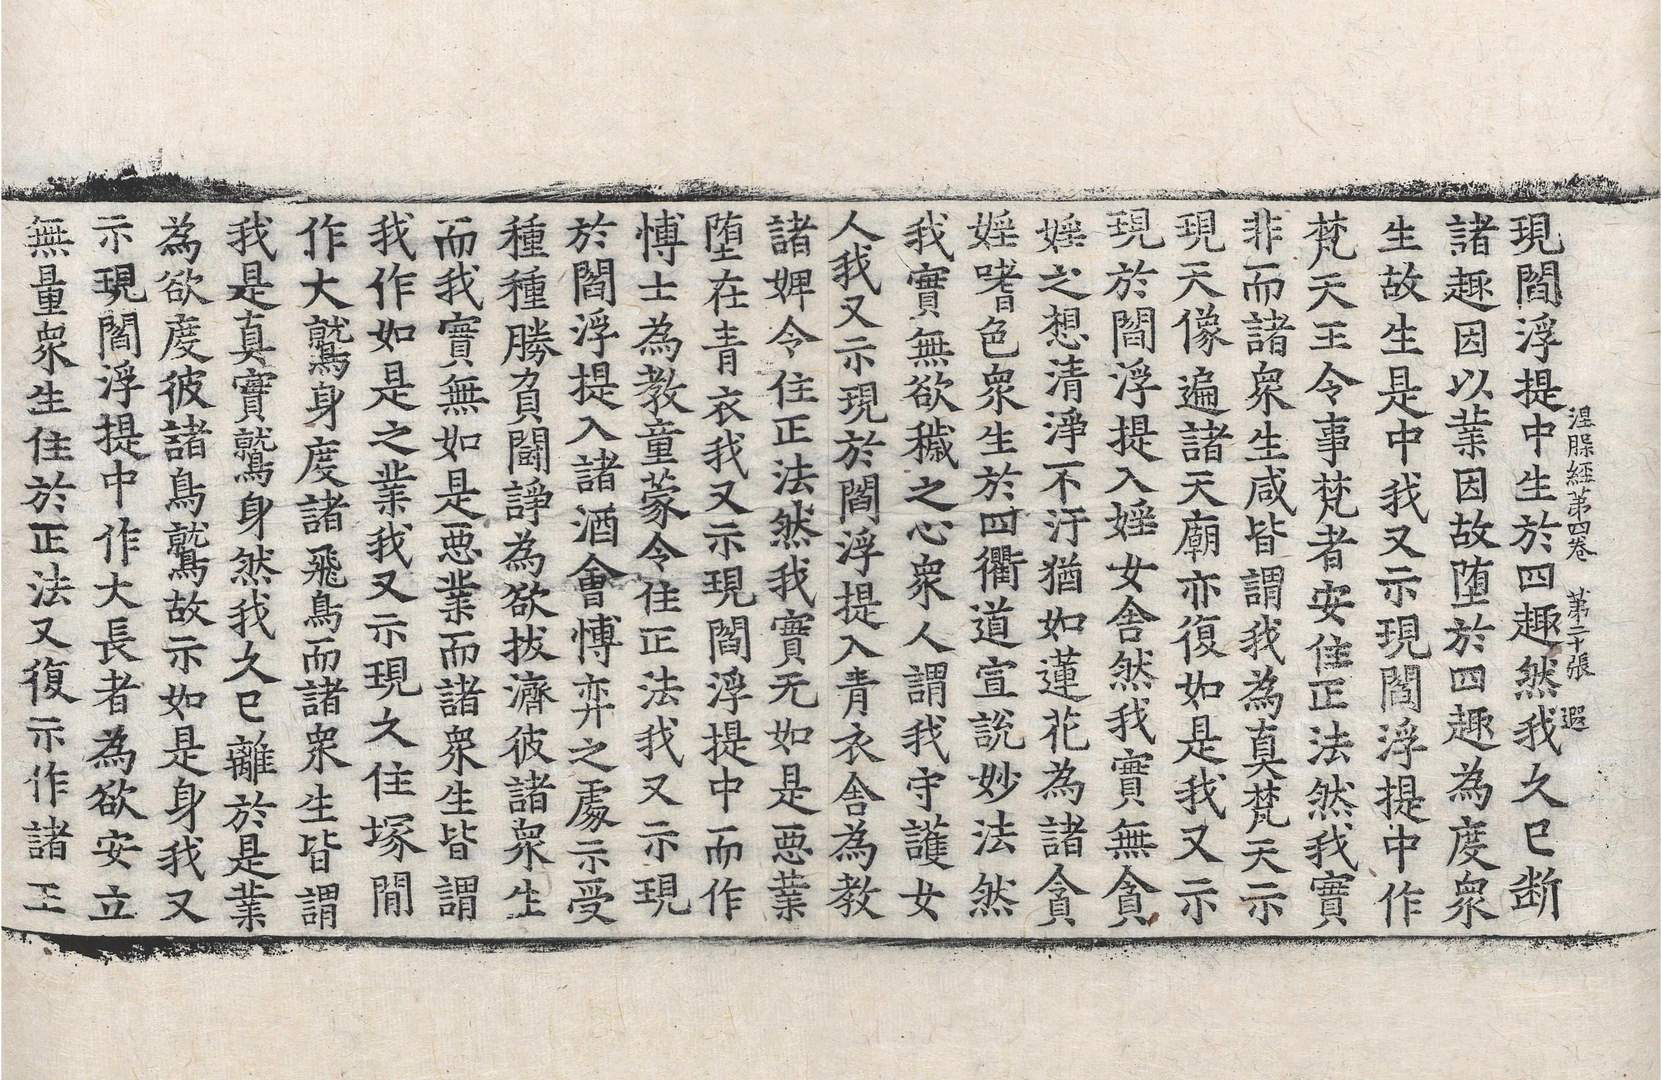 涅槃經第四卷 第二十張 遐
現閻浮提中生於四趣然我久已断
諸趣因以業因故堕於四趣為度衆
生故生是中我又示現閻浮提中作
梵天王令事梵者安住正法然我實
非而諸衆生咸皆謂我為真梵天示
現天像遍諸天廟亦復如是我又示
現於閻浮提入婬女舍然我實無貪
婬之想清淨不汙猶如蓮花為諸貪
婬嗜色衆生於四衢道宣說妙法然
我實無欲穢之心衆人謂我守護女
人我又示現於閻浮提入青衣舍為教
諸婢令住正法然我實无如是悪業
堕在青衣我又示現閻浮提中而作
愽士為教童蒙令住正法我又示現
於閻浮提入諸酒會愽弈之處示受
種種勝負鬪諍為欲拔濟彼諸衆生
而我實無如是悪業而諸衆生皆謂
我作如是之業我又示現久住塚間
作大鷲身度諸飛鳥而諸衆生皆謂
我是真實鷲身然我久已離於是業
為欲度彼諸鳥鷲故示如是身我又
示現閻浮提中作大長者為欲安立
無量衆生住於正法又復示作諸王